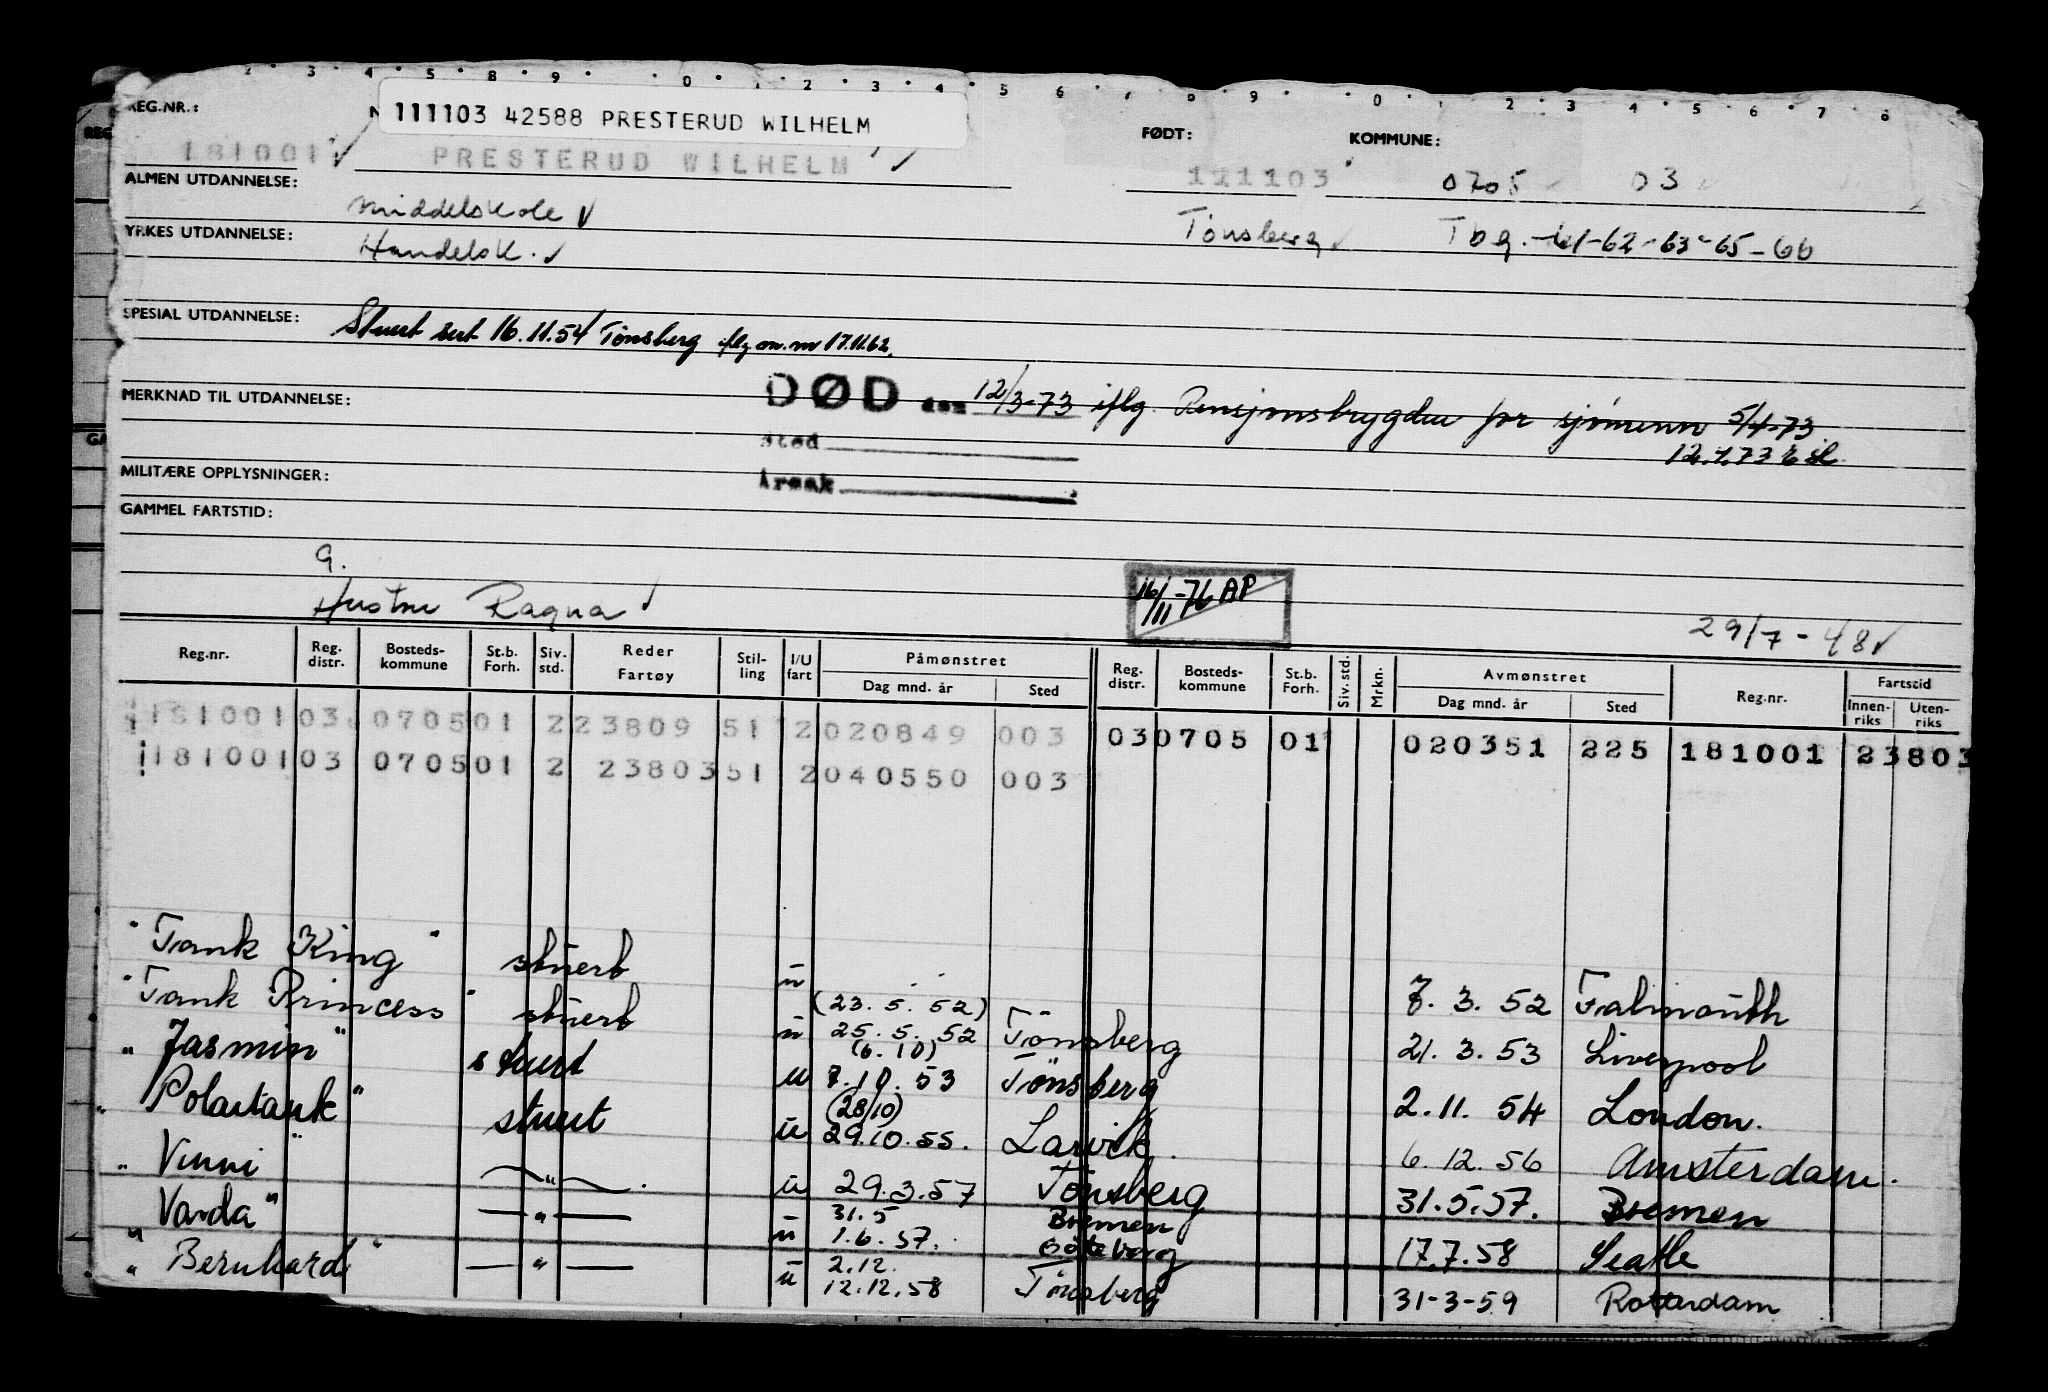 2 3 4 5 8 9 0 1 2 3 4 5 6 7 8 9 0 1 2 3 4 5 6 7 8
REG.NR.: N 111103 42588 PRESTERUD WILHELM FØDT: KOMMUNE:
181001 PRESTERUD WILHELM 111103 0705 03
ALMEN UTDANNELSE: Middelskole Tönsberg Tbg. -61-62-63-65-66
YRKES UTDANNELSE: Handelsk.
SPESIAL UTDANNELSE: Stuert sert 16.11.54 Tönsberg iflg on.nr 17.11.62.
MERKNAD TIL UTDANNELSE: DØD den 12/3-73 iflg. Pensjonstrygden for sjömenn 5/4-73
Sted 12.4.73
MILITÆRE OPPLYSNINGER: Årsak
GAMMEL FARTSTID:
G.
Hustru Ragna 16/11-76 AP 29/7-48
Reg.nr. Reg. distr. Bosteds-kommune St.b. Forh. Siv. std. Reder Fartøy Stil-ling I/U fart Påmønstret Reg. distr. Bosteds-kommune St.b. Forh. Siv. std. Mrkn. Avmønstret Reg.nr. Fartstid
Dag mnd. år Sted Dag mnd. år Sted Innen-riks Uten-riks
181001 03 0705 01 2 23809 51 2 020849 003 03 0705 01 020351 225 181001 23803
181001 03 0705 01 2 23803 51 2 040550 003
"Tank King" stuert u 7. 3. 52 Falmouth
"Tank Princess" stuert u (23. 5. 52) 25. 5. 52 Tönsberg 21. 3. 53 Liverpool
"Jasmin" stuert u (6.10) 7.10. 53 Tönsberg 2.11. 54 London.
"Polartank" stuert u (28/10) 29.10.55. Larvik. 6.12.56 Amsterdam.
"Vinni" —"— u 29.3.57 Tönsberg 31.5.57. Bremen
"Varda" —"— u 31.5 Bremen 1.6.57. Göteborg 17.7.58 Seatle
"Bernhard" —"— u 2.12. 12.12.58 Tönsberg 31-3-59 Rotterdam